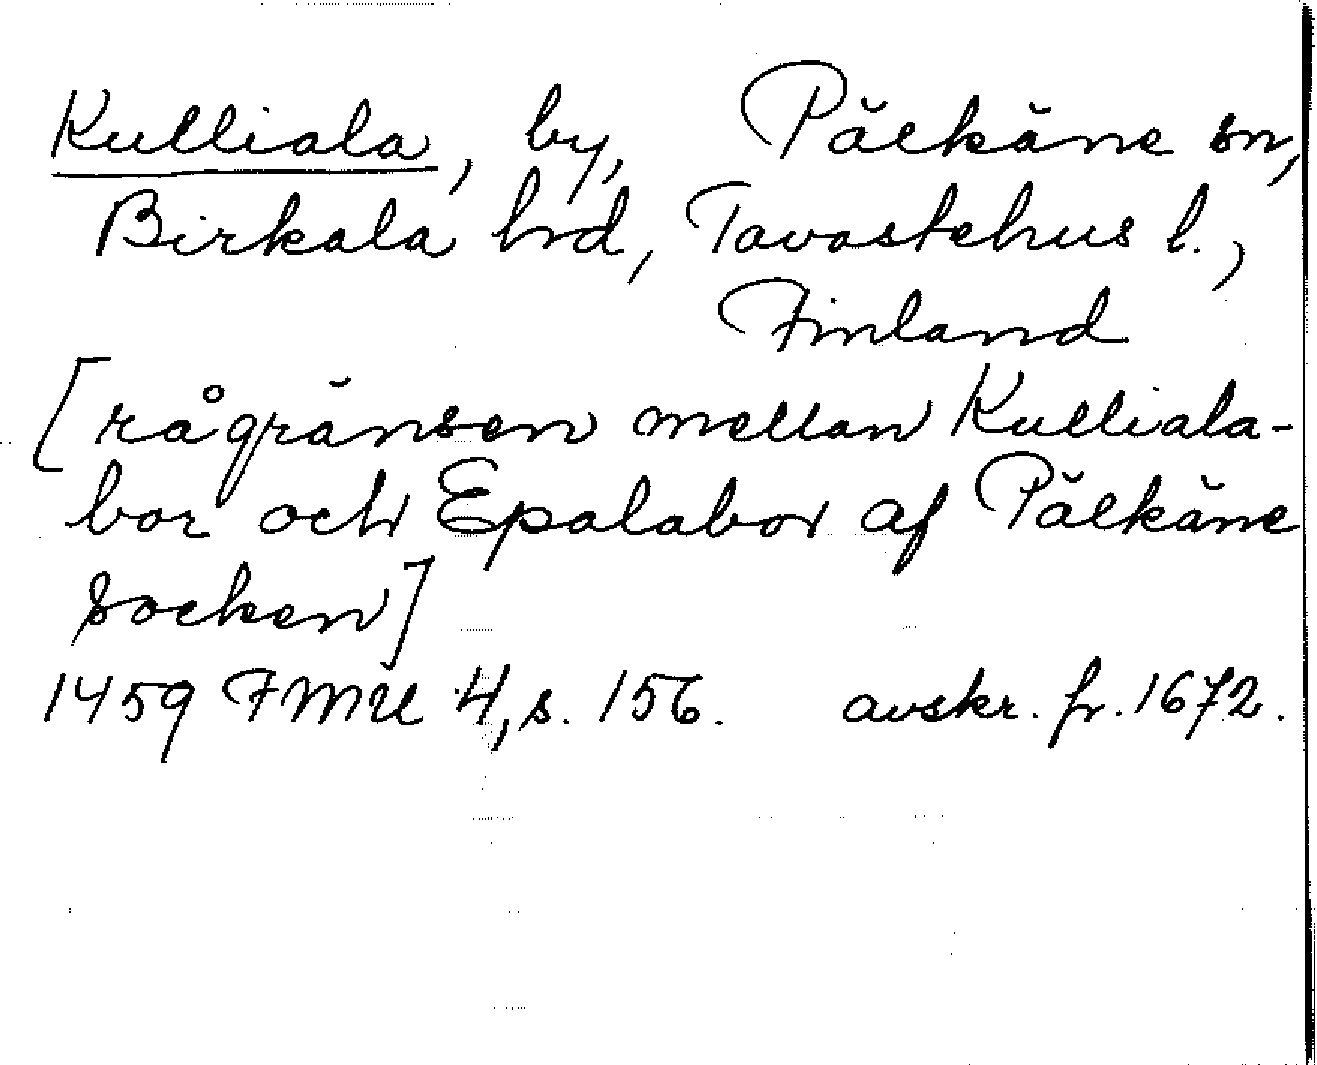 Kulliala, by, Pälkäne sn,
Birkala hrd, Tavastehus l.,
Finland
[rågränsen mellan Kulliala-
bor och Epalabor af Pälkäne
Socken]
1459 FMU 4, s. 156. avskr. fr. 1672.